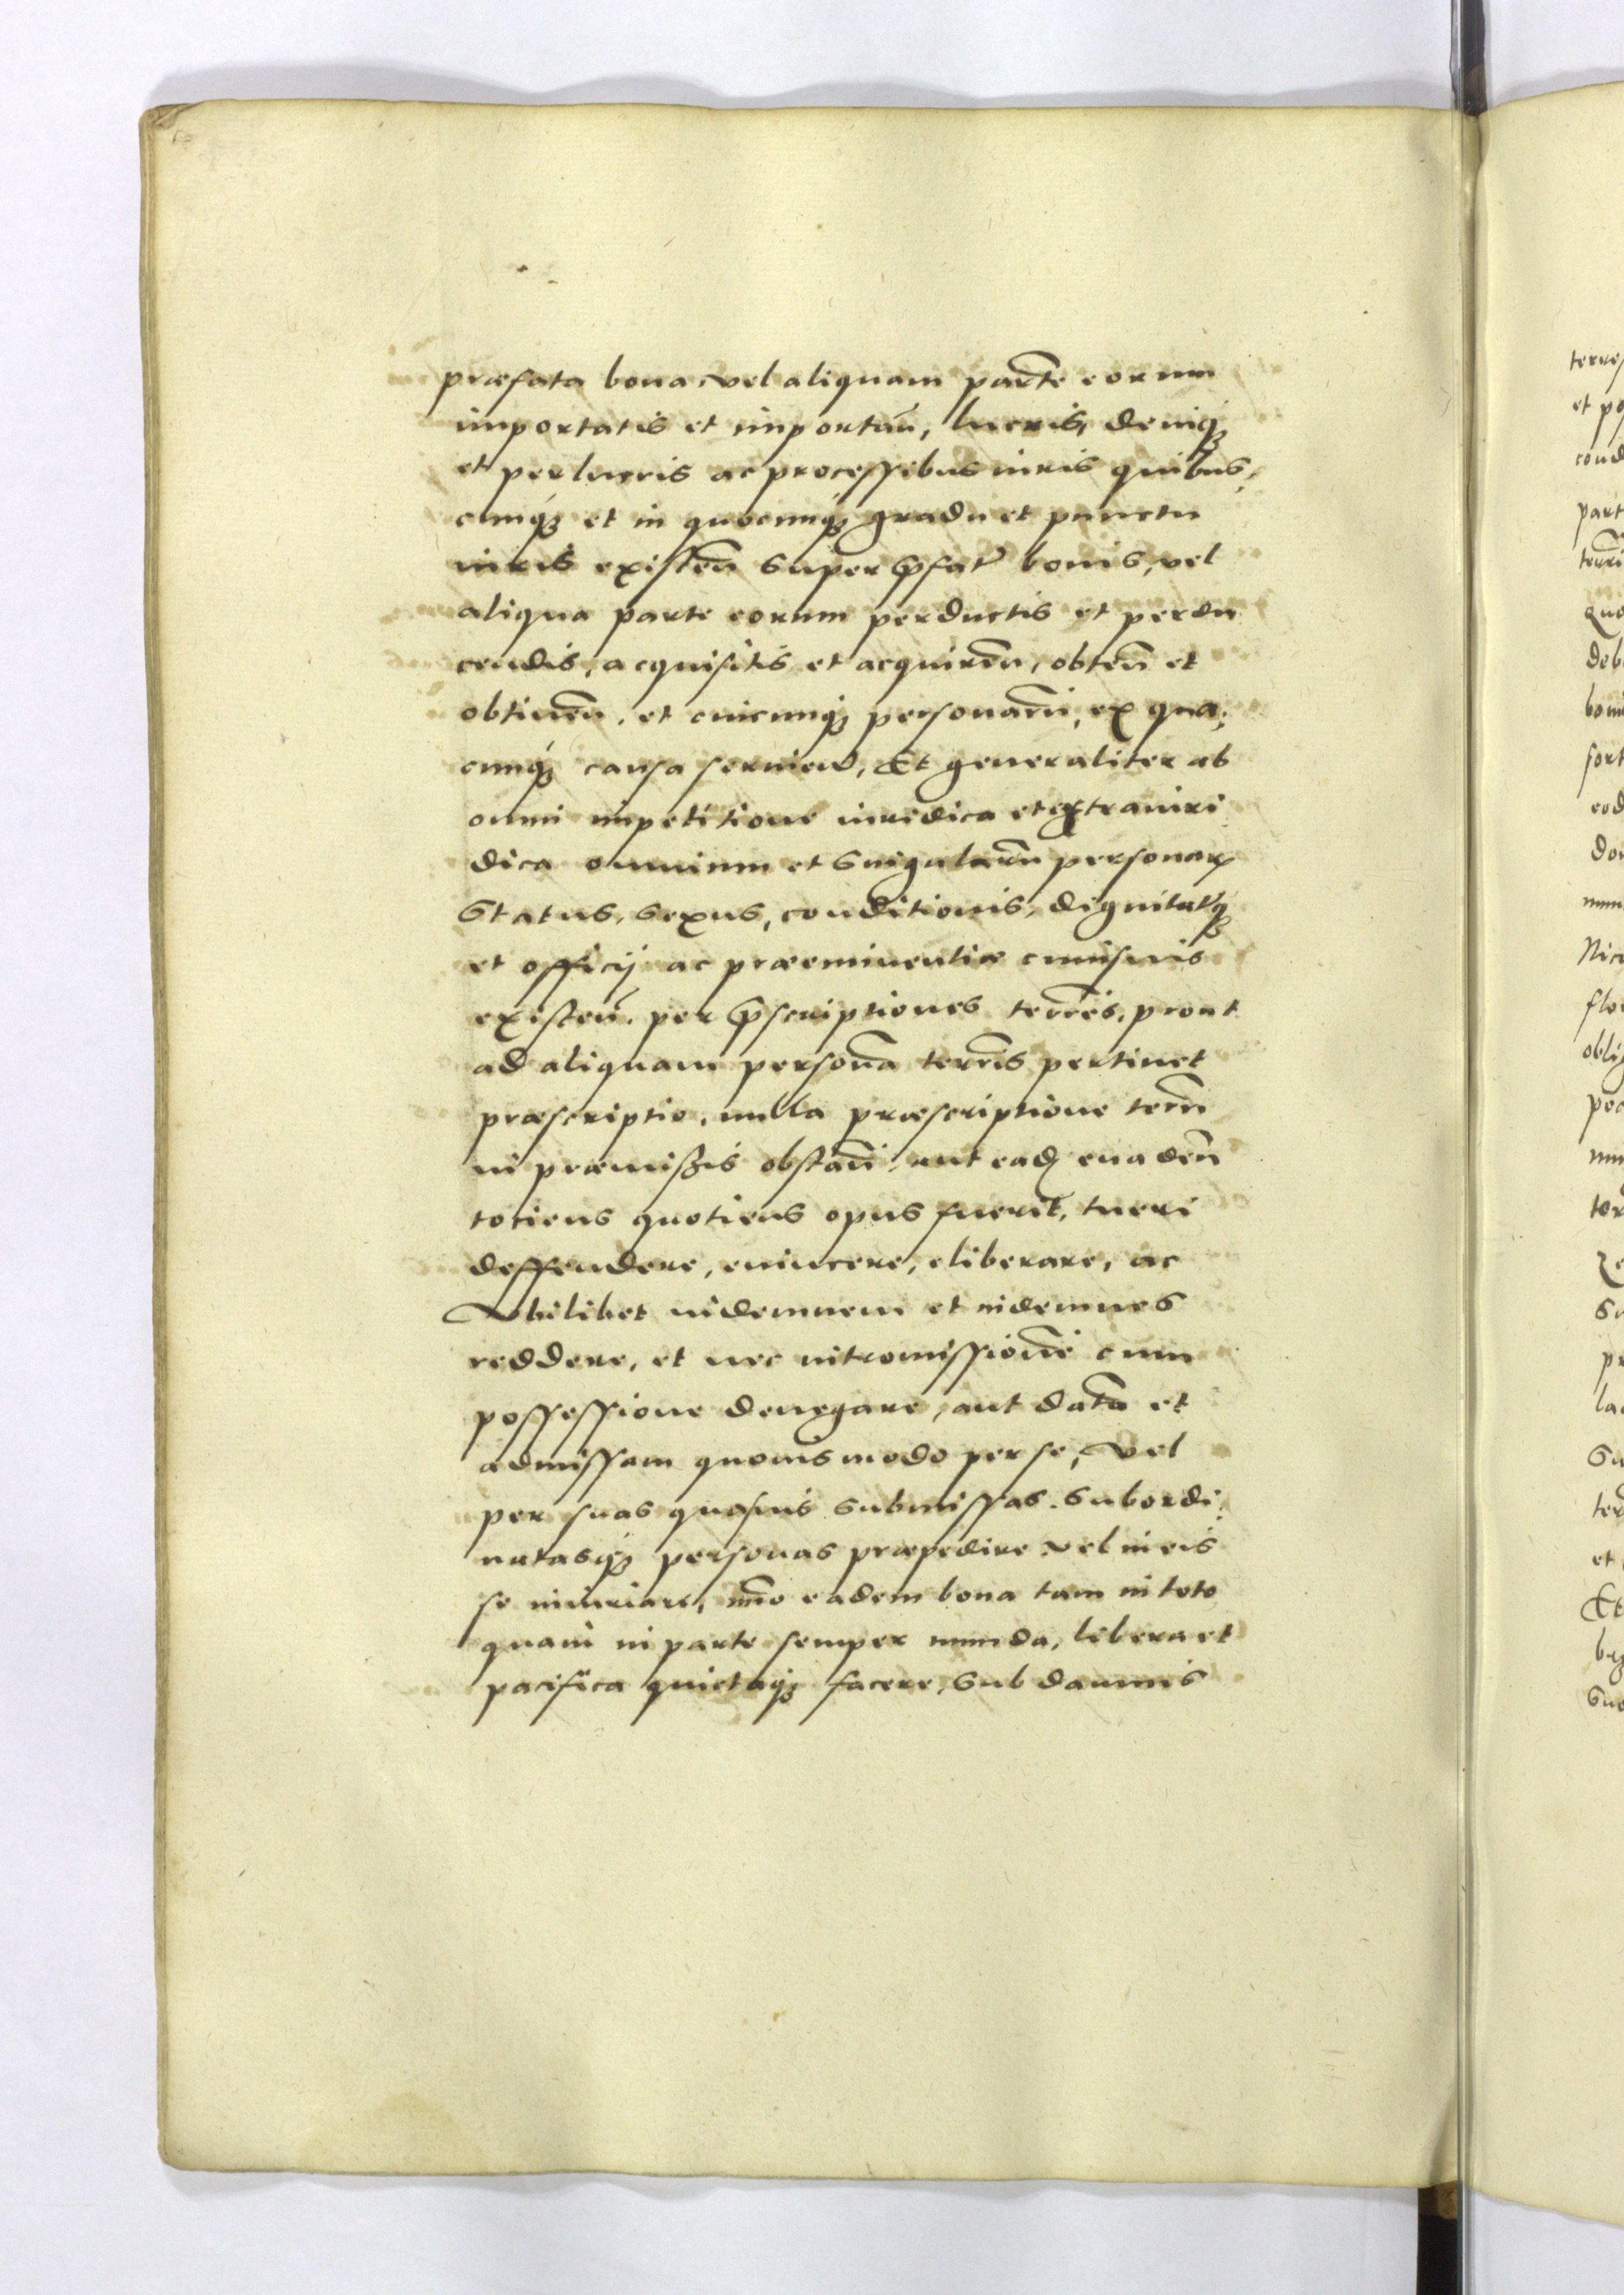 præfata bona, vel aliquam parte̅ eorum
importatis et importan̅, lucris, deniq̃
et perlucris ac processibus iuris quibus,
cunq̃ et in quocunq̃ gradu et punctu
iuris existen̅ super p̅fat̃ bonis, vel
aliqua parte eorum perductis et perdu
cendis, acquisitis et acquiren̅, obten̅ et
obtinen̅, et cuicunq̃ personaru̅, ex qua,
cunq̃ causa servien̅, Et generaliter ab
omni impetitione iuridica et extraiuri
dica omnium et singularu̅ personarꝝ
status, sexus, conditionis, dignitatisq̃
et officij ac præeminentiæ cuiusvis
existen̅, per p̅scriptiones terr̅es, prout
ad aliquam persona̅ terr̅is pertinet
præscriptio, nulla præscriptione terr̅i
in præmissis obstan̅, aut ead̃ evaden̅
totiens quotiens opus fuerit, tueri
deffendere, evincere, eliberare, ac
Ubilibet indemnem et indemnes
reddere, et nec intromissione̅ cum
possessione denegare, aut data̅ et
admissam quovismodo per se, vel
per suas quasvis submissas, subordi,
natasq̃ personas præpedire vel in eis
se iniuriare, im̅o eadem bona tam in toto
quam in parte semper munda, libera et
pacifica quietaq̃ facere, sub damnis